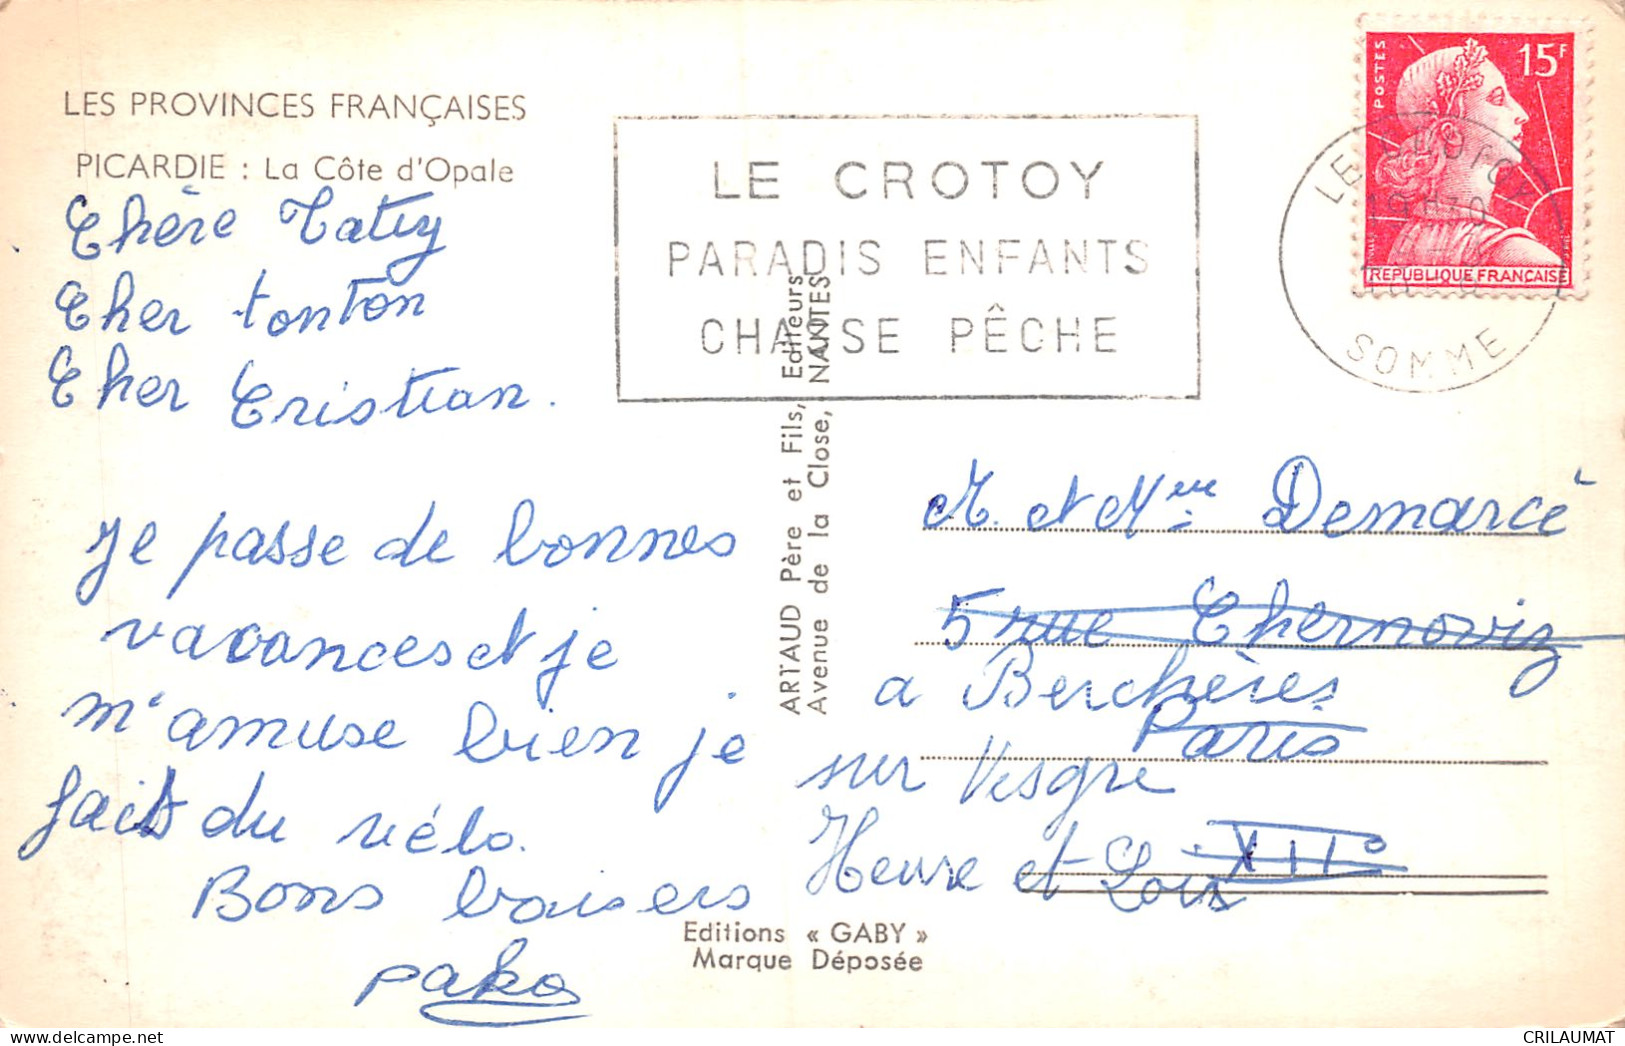 LES PROVINCES FRANÇAISES
PICARDIE : La Côte d'Opale
Chère Taty
Cher tonton
Cher Cristian.
Je passe de bonnes
vacances et je
m'amuse bien je
fais du vélo.
Bons baisers
pako
LE CROTOY
PARADIS ENFANTS
CHASSE PÊCHE
ARTAUD Père et Fils, Editeurs
Avenue de la Close, NANTES
Editions « GABY »
Marque Déposée
POSTES
15F
REPUBLIQUE FRANÇAISE
LE CROTOY
SOMME
M. et Mme Demarcè
5 rue Chernoviz
a Berchères
Paris
sur Vesgre
XII°
Heure et Loir
CRILAUMAT